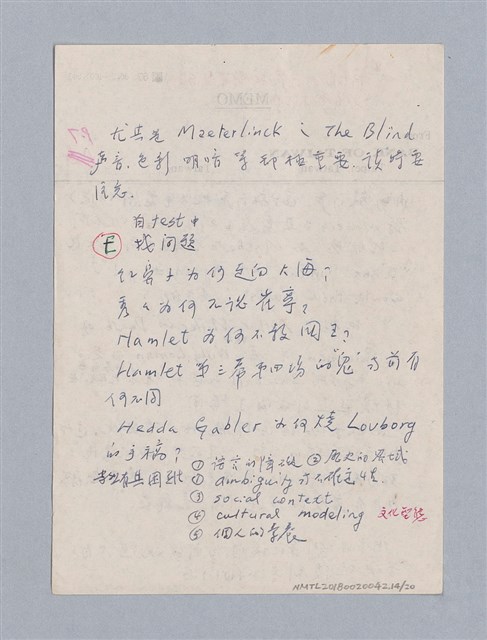 P.7
尤其是 Maeterlinck i The Blind
声音、色彩 明暗 等 都極重要, 讀時要
注意.
自test中
E 找問題
红房子 为何走向大海?
秀才为何不認 崔寧?
Hamlet 为何不殺 國王?
Hamlet 第三幕第四場的"鬼"与前有
何不同
Hedda Gabler 为何燒 Lovborg
的手稿?
① 語言的障礙 ② 歷史的
学生有其困難 ② ambiguity 不確定性
③ social context
④ cultural modeling 文化型態
⑤ 個人的素養
NMTL20180020042.14/20